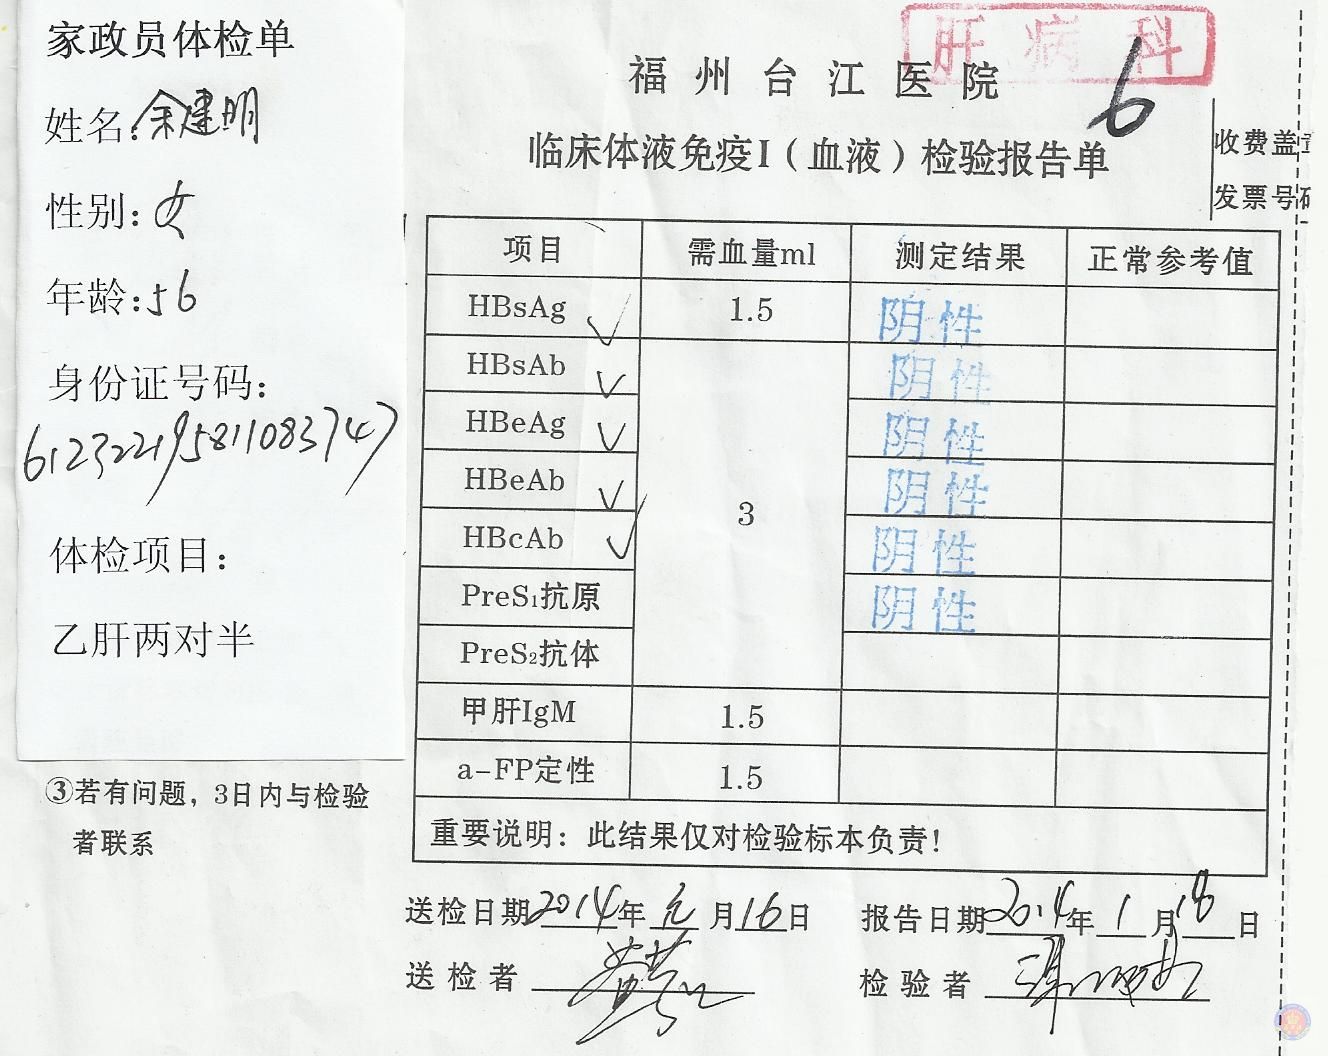 家政员体检单
姓名:余建明
性别:女
年龄:56
身份证号码:
612322195811083747
体检项目:
乙肝两对半
③若有问题，3日内与检验
者联系
肝病科
福州台江医院
6
临床体液免疫I（血液）检验报告单
收费盖
发票号码
项目 需血量ml 测定结果 正常参考值
HBsAg ✓ 1.5 阴性
HBsAb ✓ 阴性
HBeAg ✓ 阴性
HBeAb ✓ 3 阴性
HBcAb ✓ 阴性
PreS₁抗原 阴性
PreS₂抗体
甲肝IgM 1.5
a-FP定性 1.5
重要说明：此结果仅对检验标本负责！
送检日期2014年元月16日 报告日期2014年1月18日
送检者 检验者